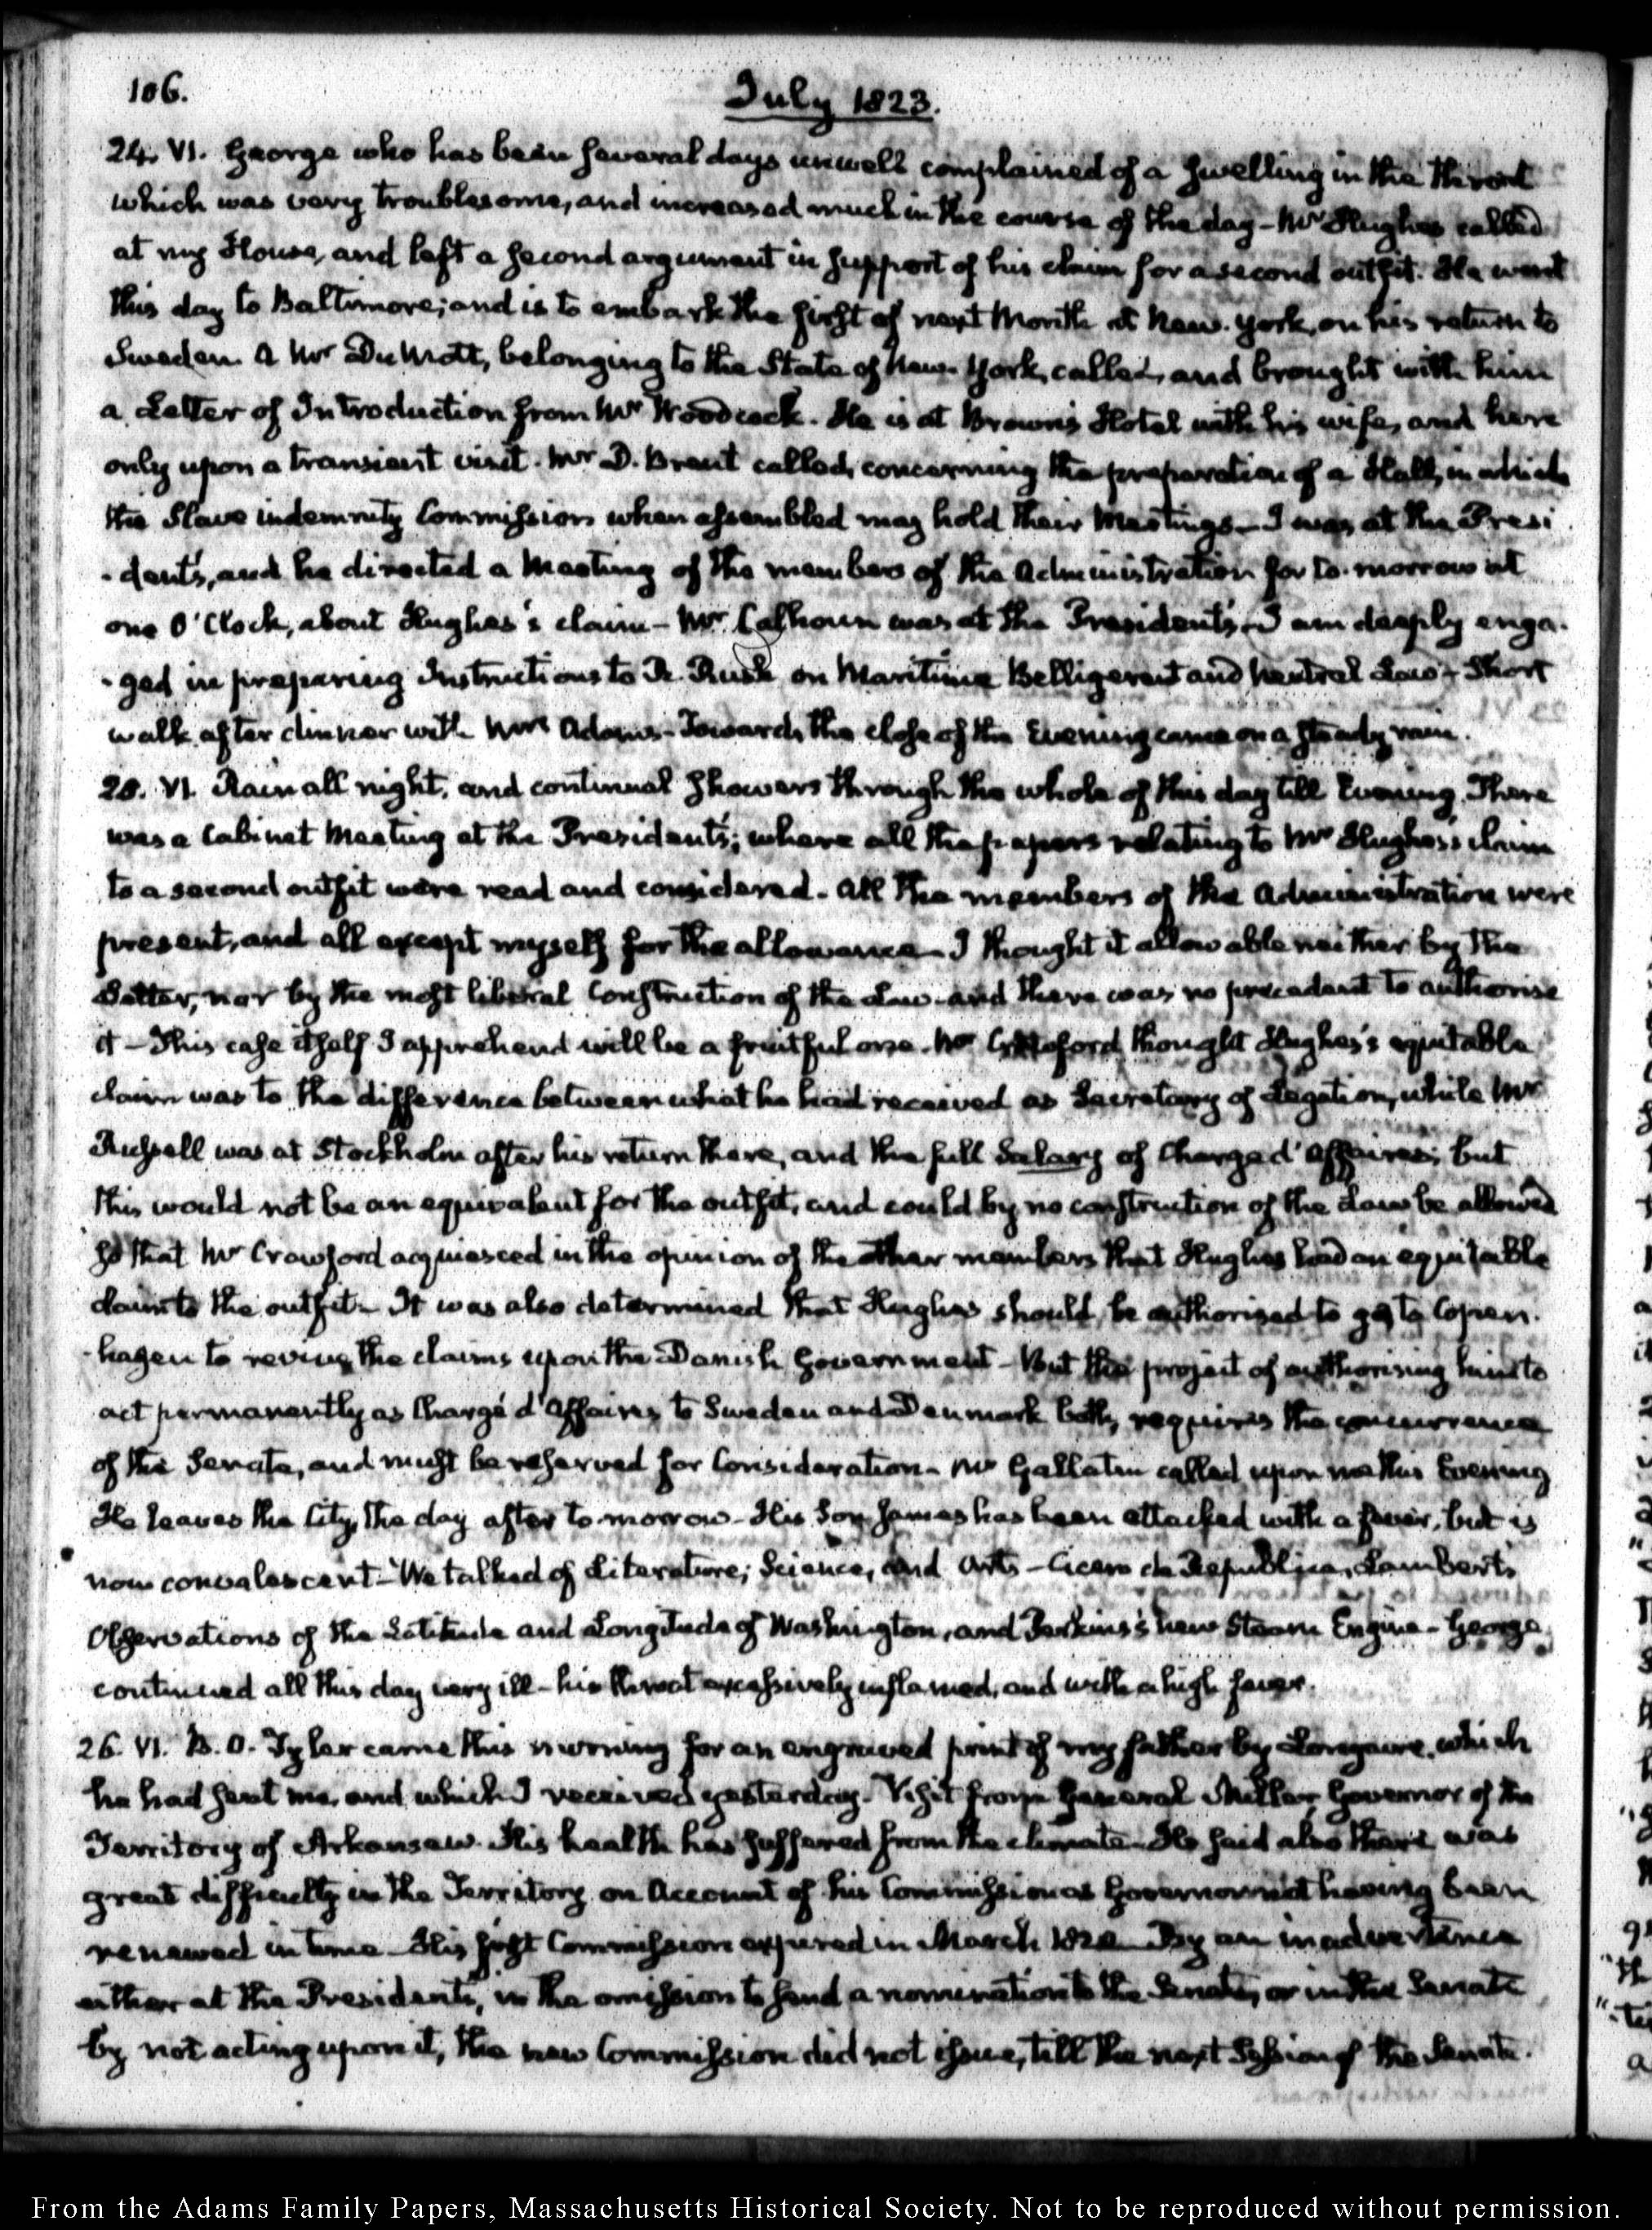 106.
July 1823.
24. VI. George who has been several days unwell complained of a swelling in the throat
which was very troublesome, and increased much in the course of the day - Mr Hughes called
at my House, and left a second argument in support of his claim for a second outfit. He went
this day to Baltimore; and is to embark the first of next Month at New-York, on his return to
Sweden. A Mr belonging to the State of New-York, called, and brought with him
a Letter of Introduction from Mr Woodcock. He is at Brown's Hotel with his wife, and here
only upon a transient visit. Mr D. Brent called, concerning the preparation of a Hall, in which
the Slave indemnity Commission when assembled may hold their Meetings - I was at the Presi
-dent's, and he directed a Meeting of the members of the Administration for to-morrow at
one O'Clock, about Hughes's claim - Mr Calhoun was at the President's. I am deeply enga-
-ged in preparing Instructions to R. Rush on Maritime Belligerent and Neutral Law - Short
walk after dinner with Mrs Adams - Towards the close of the Evening came on a steady rain.
25. VI. Rain all night, and continual showers through the whole of this day till Evening. There
was a Cabinet Meeting at the President's; where all the papers relating to Mr Hughes's claim
to a second outfit were read and considered. All the members of the Administration were
present, and all except myself for the allowance - I thought it allowable neither by the
Letter, nor by the most liberal Construction of the Law - and there was no precedent to authorise
it - This case itself I apprehend will be a fruitful one. Mr Crawford thought Hughes's equitable
claim was to the difference between what he had received as Secretary of Legation, while Mr
Russell was at Stockholm after his return there, and the full Salary of Chargé d'Affaires; but
this would not be an equivalent for the outfit, and could by no construction of the Law be allowed
so that Mr Crawford acquiesced in the opinion of the other members that Hughes had an equitable
claim to the outfit - It was also determined that Hughes should be authorised to go to Copen-
-hagen to revive the claims upon the Danish Government - But the project of authorising him to
act permanently as Chargé d'Affaires to Sweden and Denmark both, requires the concurrence
of the Senate, and must be reserved for Consideration - Mr Gallatin called upon me this Evening
He leaves the City, the day after to-morrow - His Son James has been attacked with a fever, but is
now convalescent - We talked of Literature, Science, and Arts - Cicero de Republica, Lambert's
Observations of the Latitude and Longitude of Washington, and Perkins's new Steam Engine - George
continued all this day very ill - his throat excessively inflamed, and with a high fever.
26. VI. B. O. Tyler came this morning for an engraved print of my father by which
he had sent me, and which I received yesterday. Visit from General Miller Governor of the
Territory of Arkansaw. His health has suffered from the climate - He said also there was
great difficulty in the Territory on Account of his Commission as Governor not having been
renewed in time - His first Commission expired in March 1822 - By an inadvertence
either at the President's, in the omission to send a nomination to the Senate, or in the Senate
by not acting upon it, the new Commission did not issue, till the next Session of the Senate.
From the Adams Family Papers, Massachusetts Historical Society. Not to be reproduced without permission.